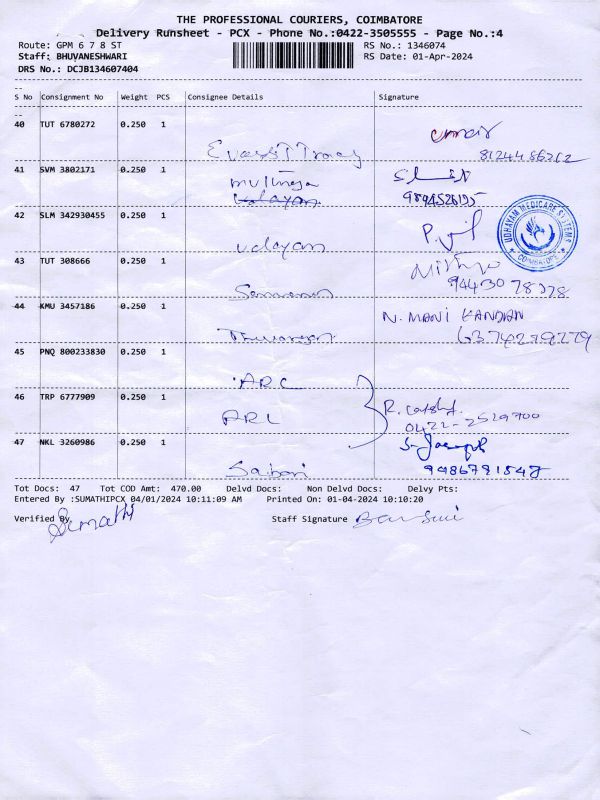 THE PROFESSIONAL COURIERS, COIMBATORE
Delivery Runsheet - PCX - Phone No.:0422-3505555 - Page No.:4
Route: GPM 6 7 8 ST RS No.: 1346074
Staff: BHUVANESHWARI RS Date: 01-Apr-2024
DRS No.: DCJB134607404
S No Consignment No Weight PCS Consignee Details Signature
40 TUT 6780272 0.250 1
8124486262
41 SVM 3802171 0.250 1
9894526195
42 SLM 342930455 0.250 1
Udayam
UDHAYAM MEDICARE SYSTEMS
COIMBATORE
43 TUT 308666 0.250 1
Nithya
94430 78778
44 KMU 3457186 0.250 1
N. MANI KANDAN
6374299779
45 PNQ 800233830 0.250 1
ARC
46 TRP 6777909 0.250 1
ARC
0422-2529700
47 NKL 3260986 0.250 1
Sabari
S. Joseph
9486791547
Tot Docs: 47 Tot COD Amt: 470.00 Delvd Docs: Non Delvd Docs: Delvy Pts:
Entered By :SUMATHIPCX 04/01/2024 10:11:09 AM Printed On: 01-04-2024 10:10:20
Verified By Sumathi Staff Signature